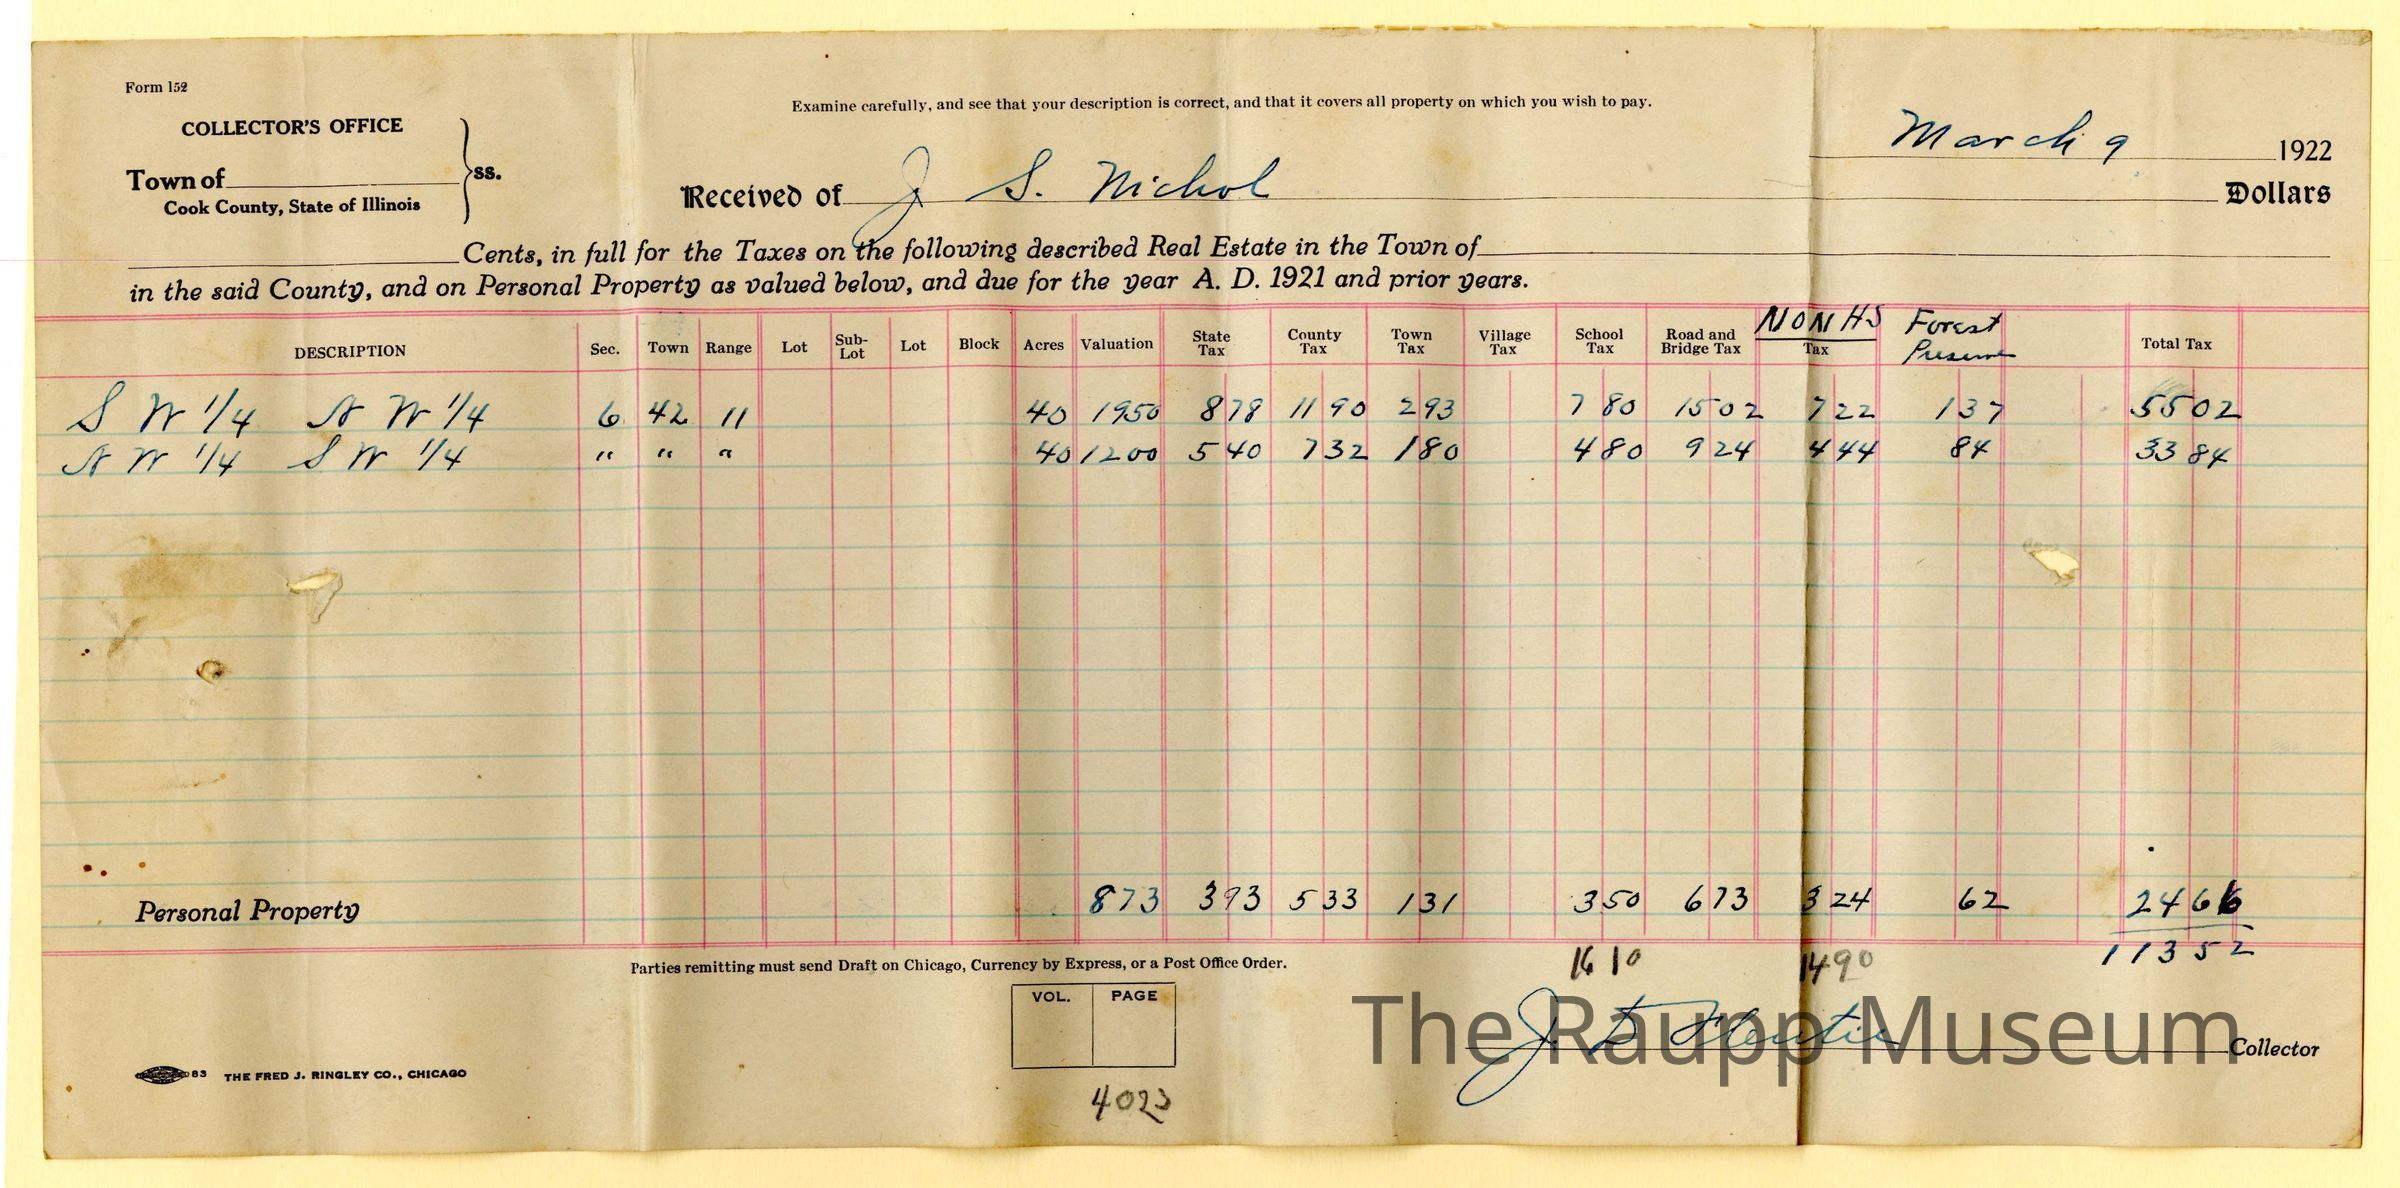 Form 152
COLLECTOR'S OFFICE
Town of
Cook County, State of Illinois
ss.
Examine carefully, and see that your description is correct, and that it covers all property on which you wish to pay.
March 9 1922
Received of J S. Nichol Dollars
Cents, in full for the Taxes on the following described Real Estate in the Town of
in the said County, and on Personal Property as valued below, and due for the year A. D. 1921 and prior years.
DESCRIPTION Sec. Town Range Lot Sub-Lot Lot Block Acres Valuation State Tax County Tax Town Tax Village Tax School Tax Road and Bridge Tax NON HS Tax Forest Preserve Total Tax
S W 1/4 N W 1/4 6 42 11 40 1950 8 78 11 90 2 93 7 80 15 02 7 22 1 37 55 02
N W 1/4 S W 1/4 " " " 40 1200 5 40 7 32 1 80 4 80 9 24 4 44 84 33 84
Personal Property 873 3 93 5 33 1 31 3 50 6 73 3 24 62 24 66
16 10 14 90 113 52
Parties remitting must send Draft on Chicago, Currency by Express, or a Post Office Order.
VOL. PAGE
4023
J. Collector
The Raupp Museum
83 THE FRED J. RINGLEY CO., CHICAGO